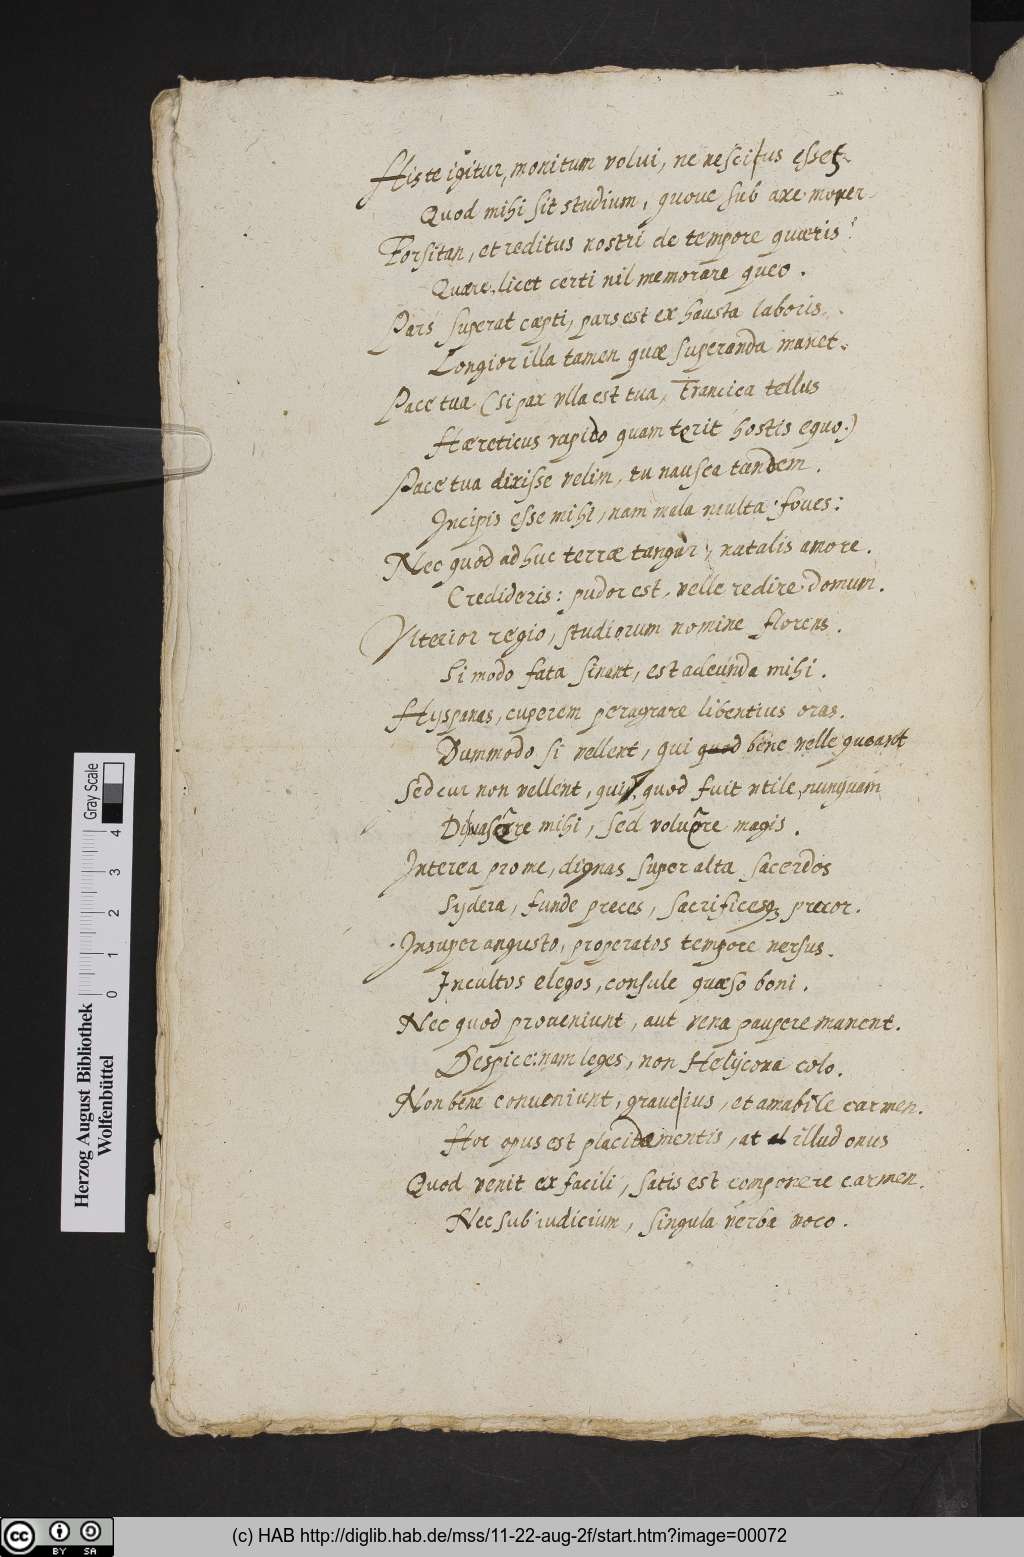 His te igitur, monitum volui, ne nescius esses
Quod mihi sit studium, quove sub axe morer.
Forsitan, et reditus nostri de tempore quæris?
Quære, licet certi nil memorare queo.
Pars superat cæpti, pars est exhausta laboris.
Longior illa tamen quæ superanda manet.
Pace tua (si pax vlla est tua, Francica tellus
Hæreticus rapido quam terit hostis equo.)
Pace tua dixisse velim, tu nausea tandem.
Incipis esse mihi, nam mala multa foves:
Nec quod adhuc terræ tangar, natalis amore.
Credideris: pudor est, velle redire domum.
Vlterior regio, studiorum nomine florens.
Si modo fata sinant, est adeunda mihi.
Hyspanas, cuperem peragrare libentius oras.
Dummodo si vellent, qui quod bene velle queant
Sed cur non vellent, quid, quod fuit vtile, nunquam
mihi, sed magis.
Interea pro me, dignas super alta sacerdos
Sydera, funde preces, sacrificesq3 precor.
Insuper angusto, properatos tempore versus.
Incultos elegos, consule quæso boni.
Nec quod proveniunt, aut vena paupere manent.
Despice: nam leges, non Helycona colo.
Non bene conveniunt, grave ius, et amabile carmen.
Hoc opus est placidæ mentis, at illud onus
Quod venit ex facili, satis est componere carmen.
Nec sub iudicium, singula verba voco.
Herzog August Bibliothek
Wolfenbüttel
0 1 2 3 4
Gray Scale
CC BY SA
(c) HAB http://diglib.hab.de/mss/11-22-aug-2f/start.htm?image=00072